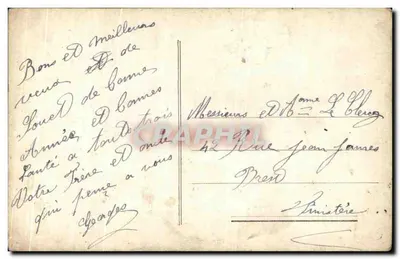 Bons et meilleurs
veux et de
Souet de bonne
Année et bonnes
Santé a toute trois
Votre frère et oncle
qui pense a vous
Georges
Messieurs et Mme Le Clerq
42 Rue jean jaures
Brest
Finistère
CPARAMA